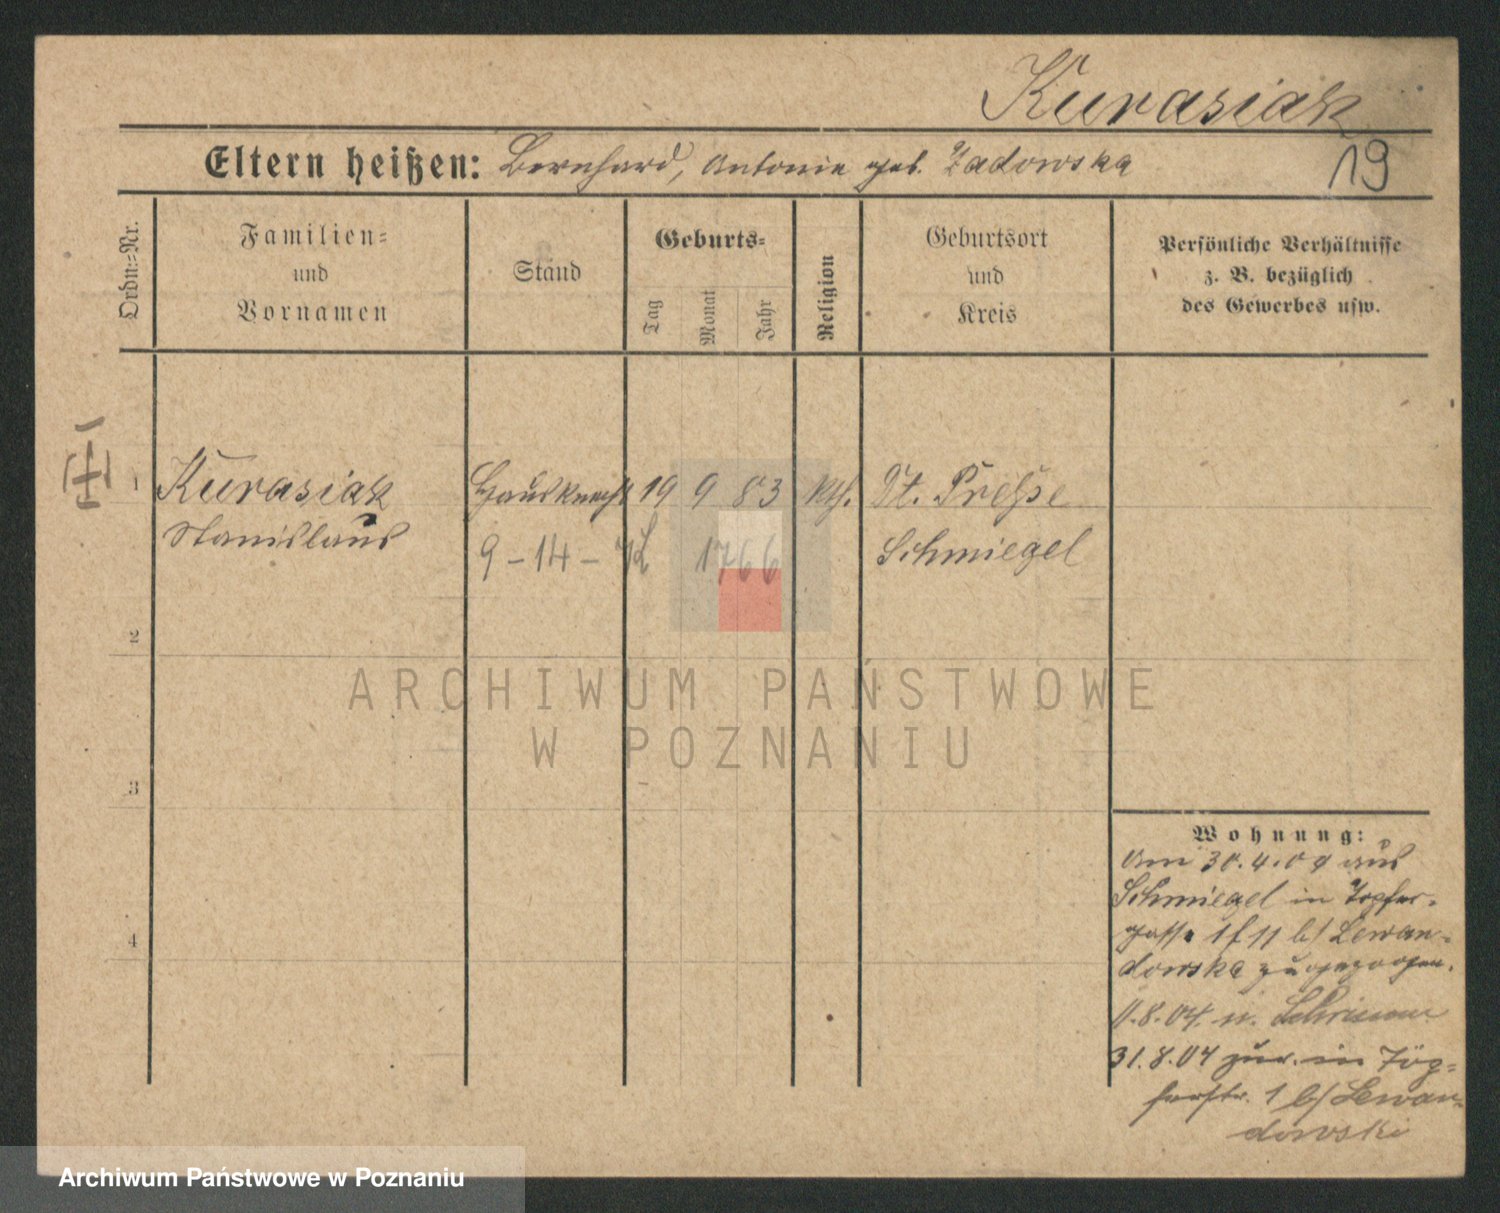 Kurasiak
19
Eltern heißen: Bernhard, Antonie geb. Zadowska
Ordn.-Nr.
Familien-
und
Vornamen
Stand
Geburts-
Tag
Monat
Jahr
Religion
Geburtsort
und
Kreis
Persönliche Verhältnisse
z. B. bezüglich
des Gewerbes usw.
1
Kurasiak Hausknecht 19 9 83 kth. Dt. Preße
Stanislaus
9-14- 1766
Schmiegel
2
3
4
Wohnung:
Am 30.4.04 aus
Schmiegel in Töpfer-
gasse 1 b/ Lewan-
dowska zugezogen.
11.8.04. n. Schrimm
31.8.04 zur. in
1 b/ Lewan-
dowski
ARCHIWUM PAŃSTWOWE
W POZNANIU
Archiwum Państwowe w Poznaniu